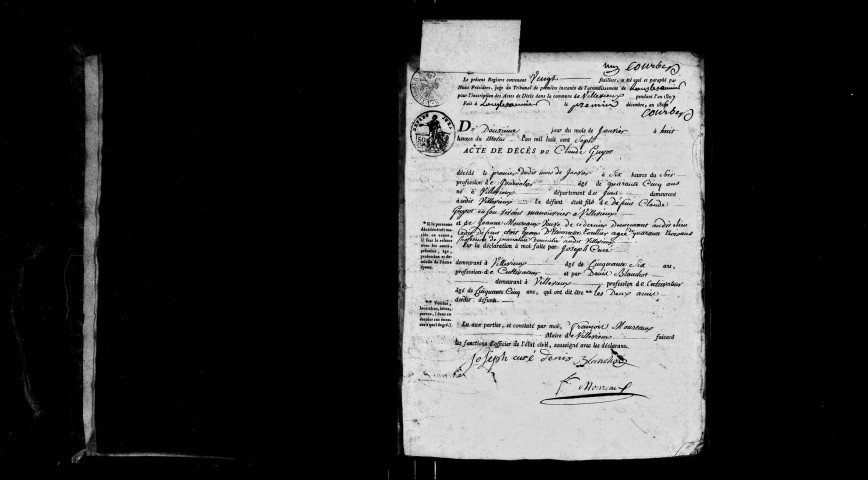 Le présent Registre contenant Vingt feuillets, a été coté et paraphé par
Nous Président, juge du Tribunal de première instance de l'arrondissement de Lonslesaunier
pour l'inscription des Actes de Décès dans la commune de Villevieux pendant l'an 1807
Fait à Lonslesaunier le premier décembre, an 1806
Du Deuxieme jour du mois de Janvier à huit
heures du Matin l'an mil huit cent Sept
ACTE DE DÉCÈS de Claude Guyot
décédé le premier dudit mois de Janvier à Six heures du Soir
profession de âgé de quarante Cinq ans
né à Villevieux département du Jura demeurant
audit Villevieux Le défunt était fils de Defunt Claude
Guyot en son vivant manouvrier à Villevieux
et de Jeanne Moureaux Veuve de ce dernier Demeurant audit lieu
Ledit défunt etoit Epoux D' agée quarante ans
profession de journalière domiciliée audit Villevieux
Sur la déclaration à moi faite par Joseph Curé
demeurant à Villevieux âgé de Cinquante Six ans,
profession de Cultivateur et par Denis Blanchot
demeurant à Villevieux profession de Cultivateur
âgé de Cinquante Cinq ans, qui ont dit être ** les Deux amis
dudit défunt.
* Si la personne
décédée était mariée
ou veuve,
il faut le relater
avec les noms,
prénoms, âge,
profession et domicile
de l'autre
époux.
** Voisins,
locataires, frères,
parens, (dans ce
dernier cas énoncer
à quel degré.)
Lu aux parties, et constaté par moi, François Moureaux
Maire de Villevieux faisant
les fonctions d'officier de l'état civil, soussigné avec les déclarans.
Joseph curé denis Blanchot
F. Moreaux